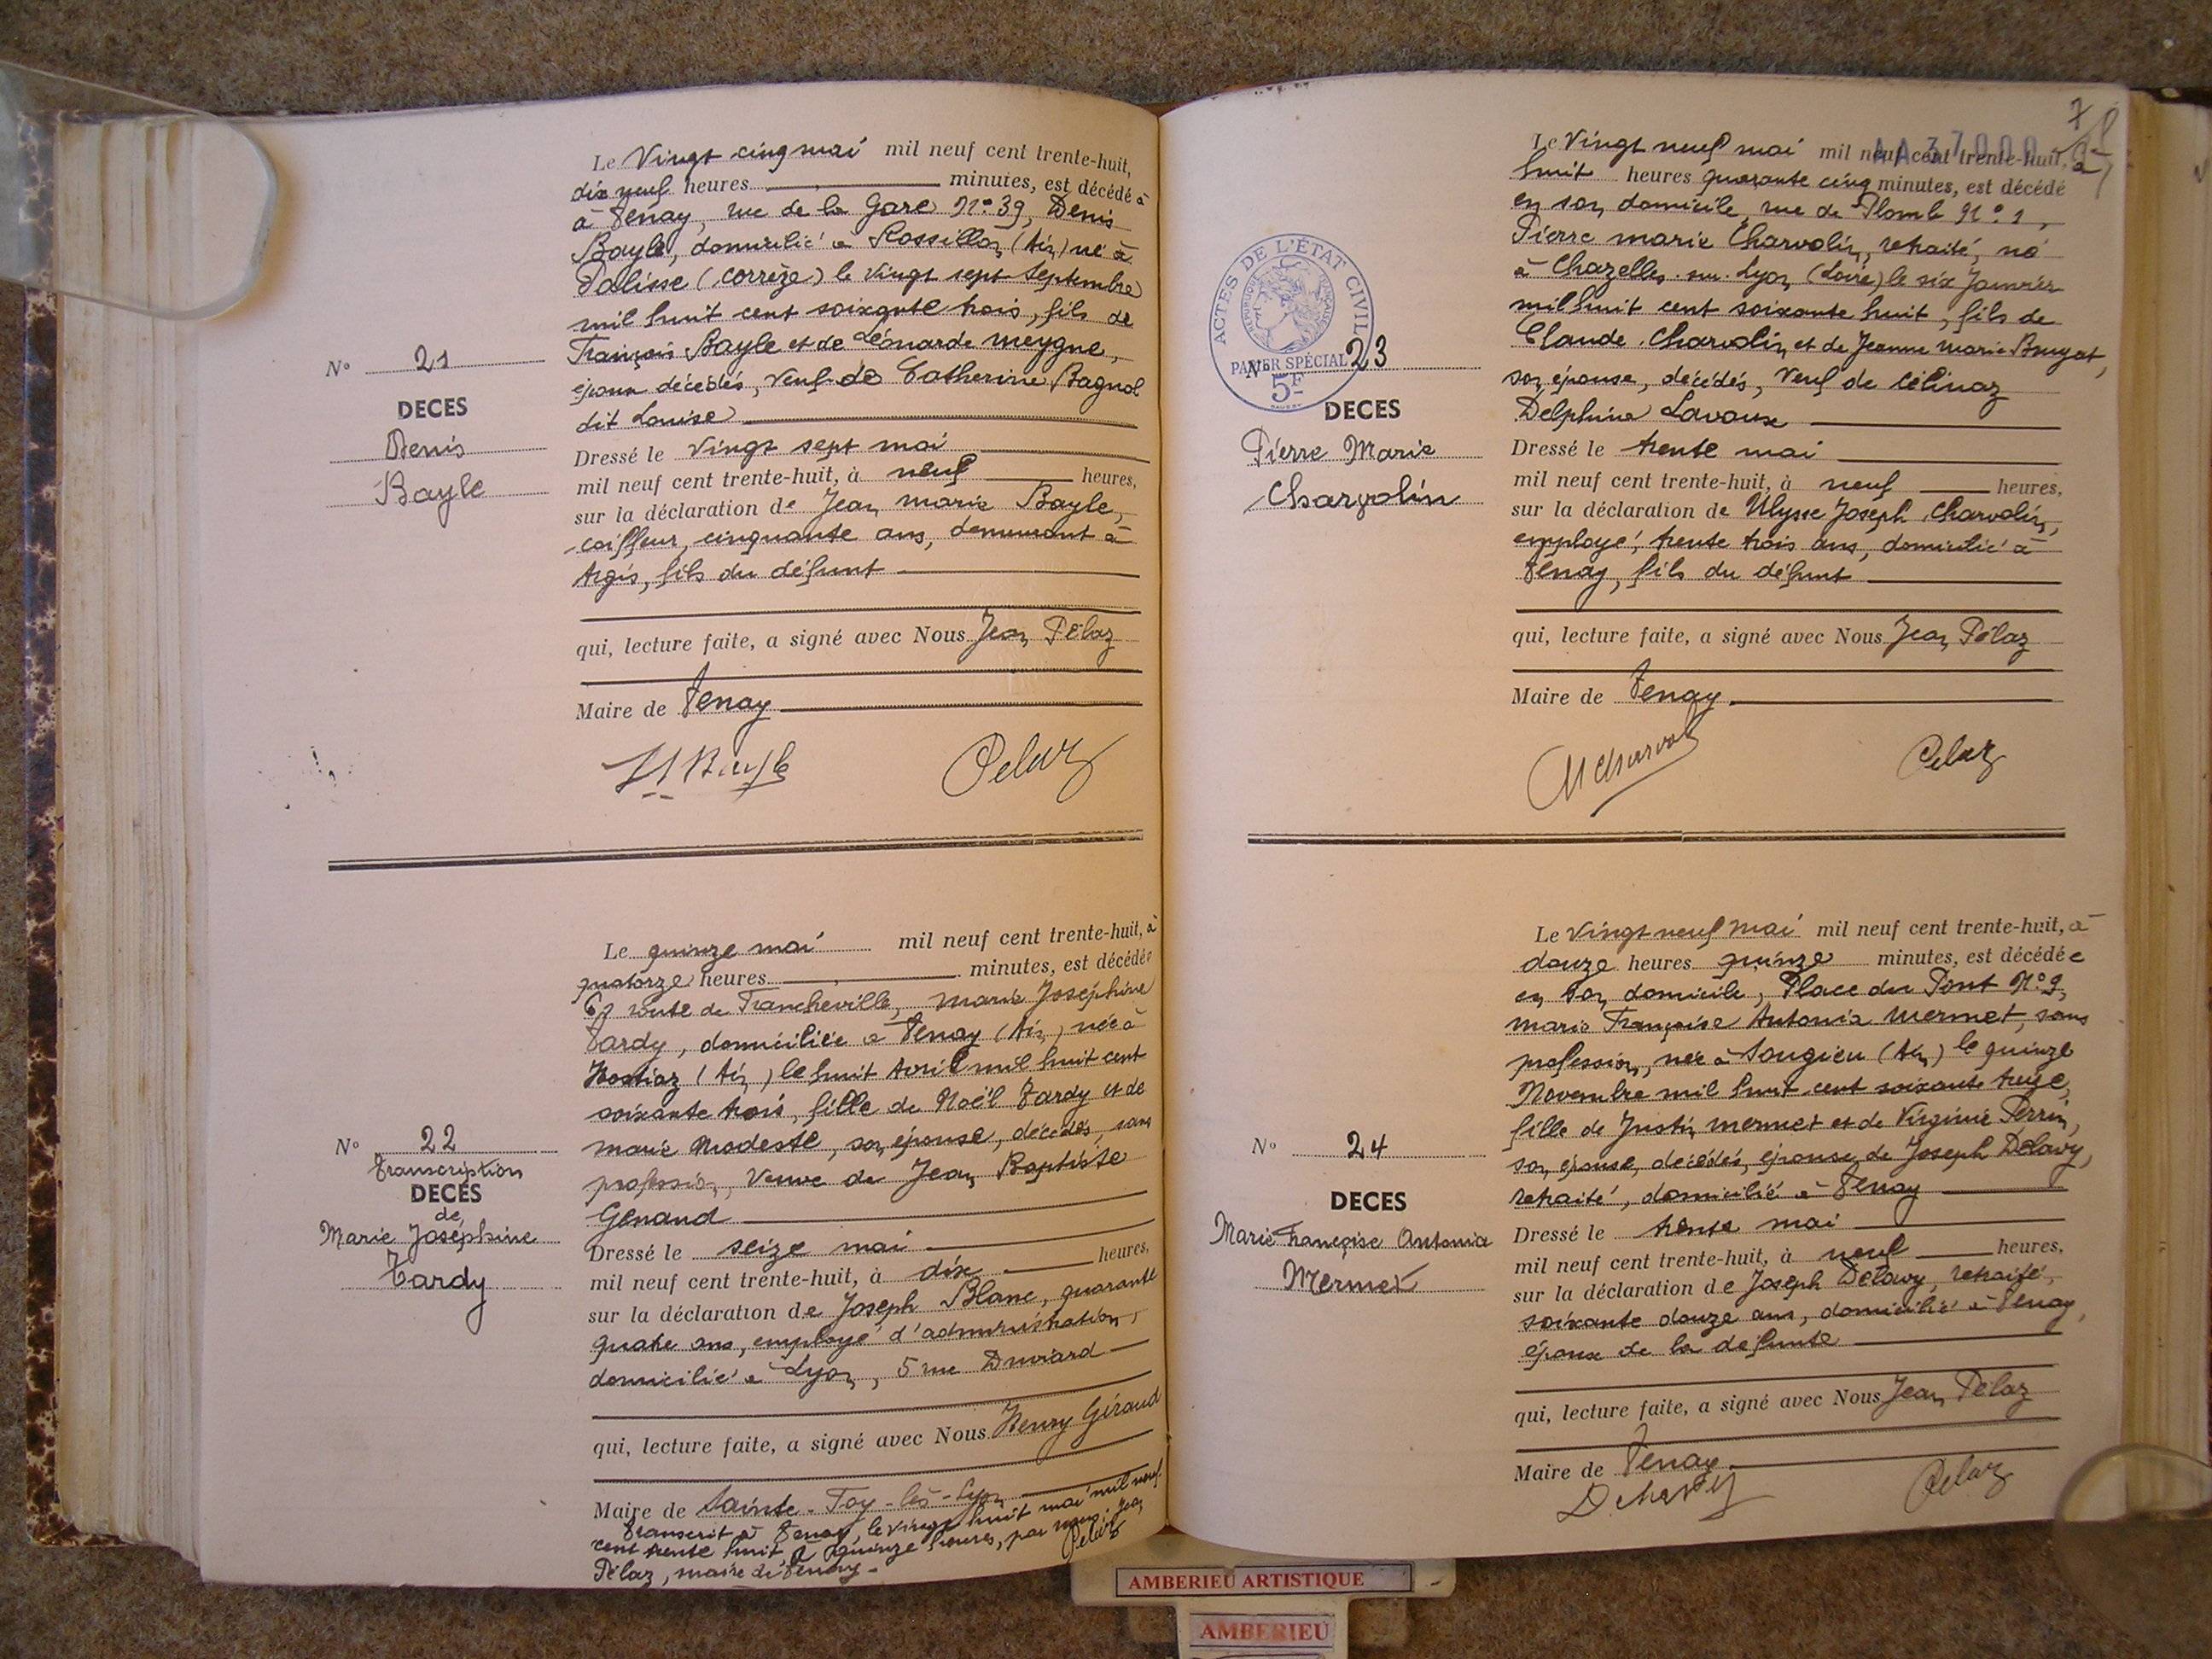 Le Vingt cinq mai mil neuf cent trente-huit,
dix neuf heures minutes, est décédé à
à Tenay, rue de la Gare N° 39, Denis
Bayle, domicilié à Rossillon (Ain) né à
Palisse (Corrèze) le vingt sept Septembre
mil huit cent soixante trois, fils de
François Bayle et de Léonarde Meygne,
époux décédés, Veuf de Catherine Bagnol
dit Louise
N° 21
DECES
Denis
Bayle
Dressé le Vingt sept mai
mil neuf cent trente-huit, à neuf heures,
sur la déclaration de Jean Marie Bayle,
coiffeur, cinquante ans, demeurant à
Argis, fils du défunt
qui, lecture faite, a signé avec Nous Jean Pélaz
Maire de Tenay
Pelaz
Le quinze mai mil neuf cent trente-huit, à
quatorze heures minutes, est décédée
route de Francheville, Marie Joséphine
Tardy, domiciliée à Tenay (Ain) née à
Hostiaz (Ain) le huit Avril mil huit cent
soixante trois, fille de Noël Tardy et de
Marie Modeste, son épouse, décédés, sans
profession, Veuve de Jean Baptiste
Genaud
N° 22
Transcription
DECES
de
Marie Joséphine
Tardy
Dressé le seize mai
mil neuf cent trente-huit, à dix heures,
sur la déclaration de Joseph Blanc, quarante
quatre ans, employé d'administration,
domicilié à Lyon, 5 rue
qui, lecture faite, a signé avec Nous Henry Giraud
Maire de Sainte-Foy-lès-Lyon
Transcrit à Tenay, le vingt huit mai mil neuf
cent trente huit, à quinze heures, par nous, Jean
Pélaz, maire de Tenay. Pelaz
7
Le Vingt neuf mai mil neuf cent trente-huit, à
huit heures quarante cinq minutes, est décédé
en son domicile, rue de Plomb N° 1,
Pierre Marie Charvolin, retraité, né
à Chazelles-sur-Lyon (Loire) le six Janvier
mil huit cent soixante huit, fils de
Claude Charvolin et de Jeanne Marie Bruyat,
son épouse, décédés, Veuf de Célinaz
Delphine Lavoux
ACTES DE L'ÉTAT CIVIL
RÉPUBLIQUE FRANÇAISE
PAPIER SPÉCIAL
5F
N° 23
DECES
Pierre Marie
Charvolin
Dressé le trente mai
mil neuf cent trente-huit, à neuf heures,
sur la déclaration de Ulysse Joseph Charvolin,
employé, trente trois ans, domicilié à
Tenay, fils du défunt
qui, lecture faite, a signé avec Nous Jean Pélaz
Maire de Tenay
Pelaz
Le Vingt neuf mai mil neuf cent trente-huit, à
douze heures quinze minutes, est décédée
en son domicile, Place du Pont N° 9,
Marie Françoise Antonia Mermet, sans
profession, née à Songieu (Ain) le quinze
Novembre mil huit cent soixante treize,
fille de Justin Mermet et de Virginie Perrin,
son épouse, décédés, épouse de Joseph Delavy,
retraité, domicilié à Tenay
N° 24
DECES
Marie Françoise Antonia
Mermet
Dressé le trente mai
mil neuf cent trente-huit, à neuf heures,
sur la déclaration de Joseph Delavy, retraité,
soixante douze ans, domicilié à Tenay,
époux de la défunte
qui, lecture faite, a signé avec Nous Jean Pélaz
Maire de Tenay
Pelaz
AMBERIEU ARTISTIQUE
AMBERIEU